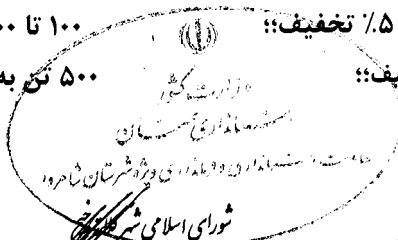 ۱۰۰ تا ۰۰ ۵٪ تخفیف؛؛
۵۰۰ تن به یف؛؛
وزارت کشور
استانداری سمنان
معاونت استانداری و فرمانداری ویژه شهرستان شاهرود
شورای اسلامی شهر